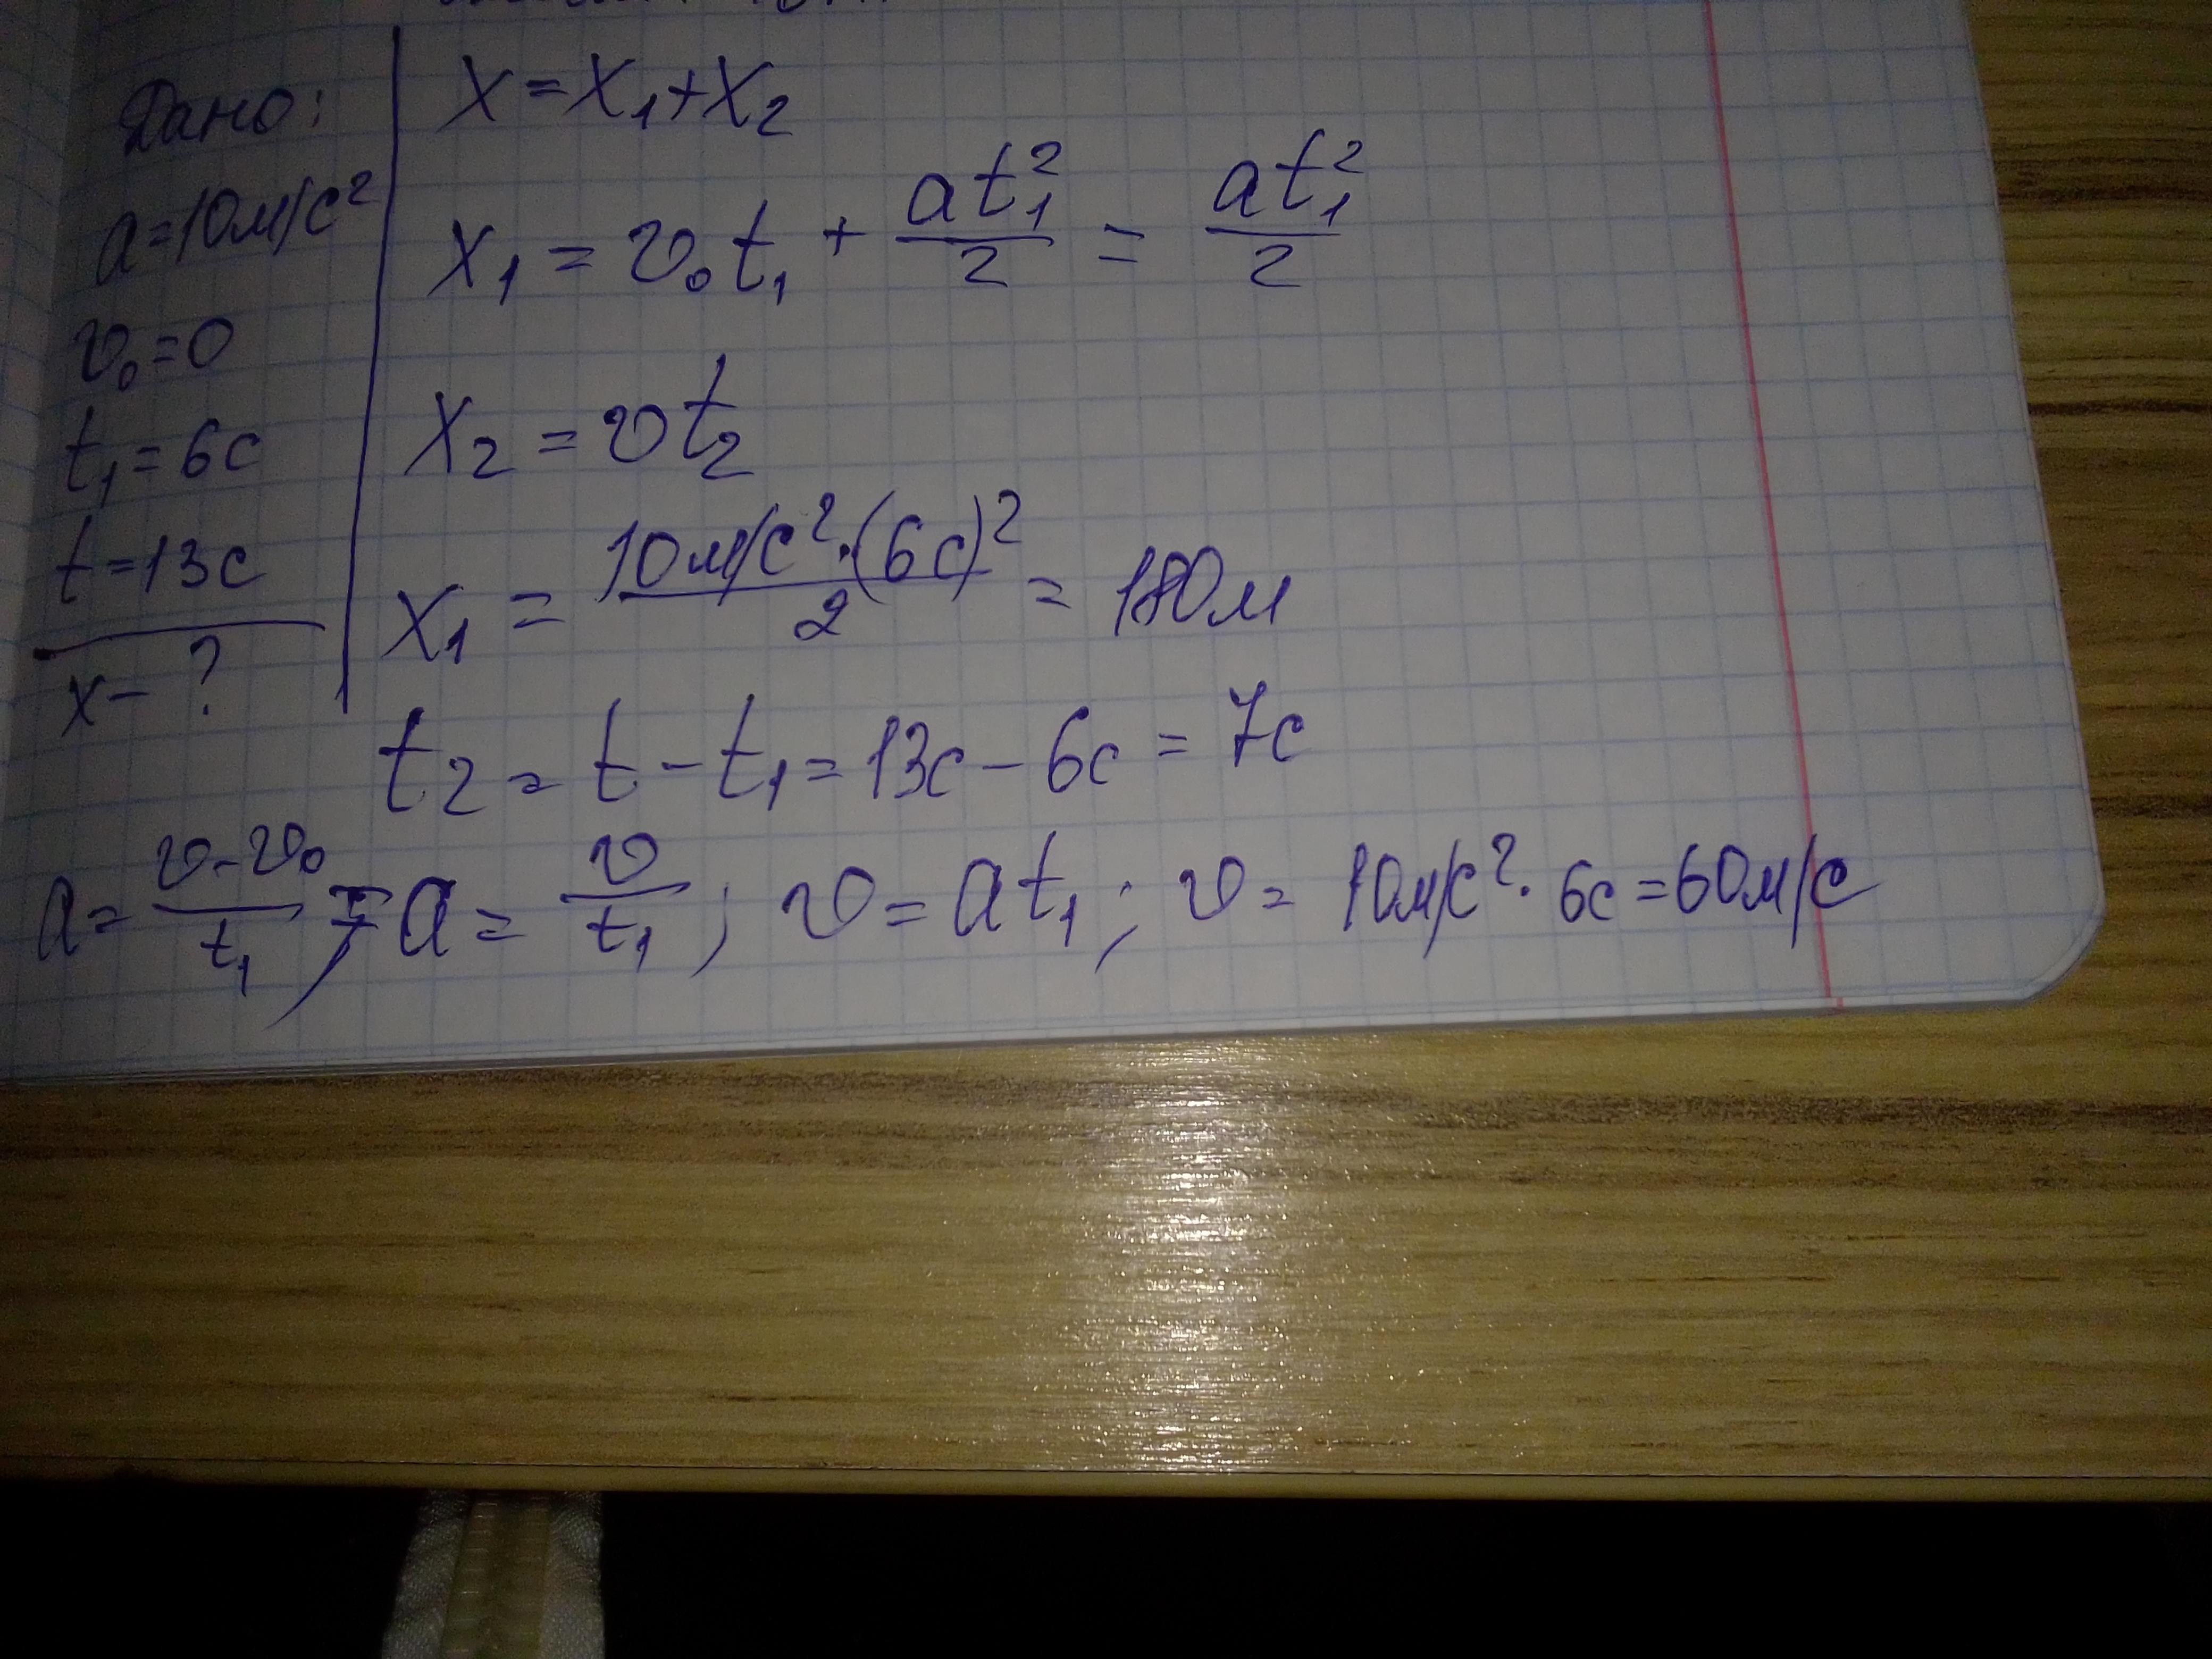 Дано:
a=10м/с²
v₀=0
t₁=6с
t=13с
x-?
X=X₁+X₂
X₁ = v₀t₁ + at₁²/2 = at₁²/2
X₂ = vt₂
X₁ = 10м/с²·(6с)²/2 = 180м
t₂ = t - t₁ = 13с - 6с = 7с
a = v-v₀/t₁ ; a = v/t₁ ; v = at₁ ; v = 10м/с²·6с=60м/с